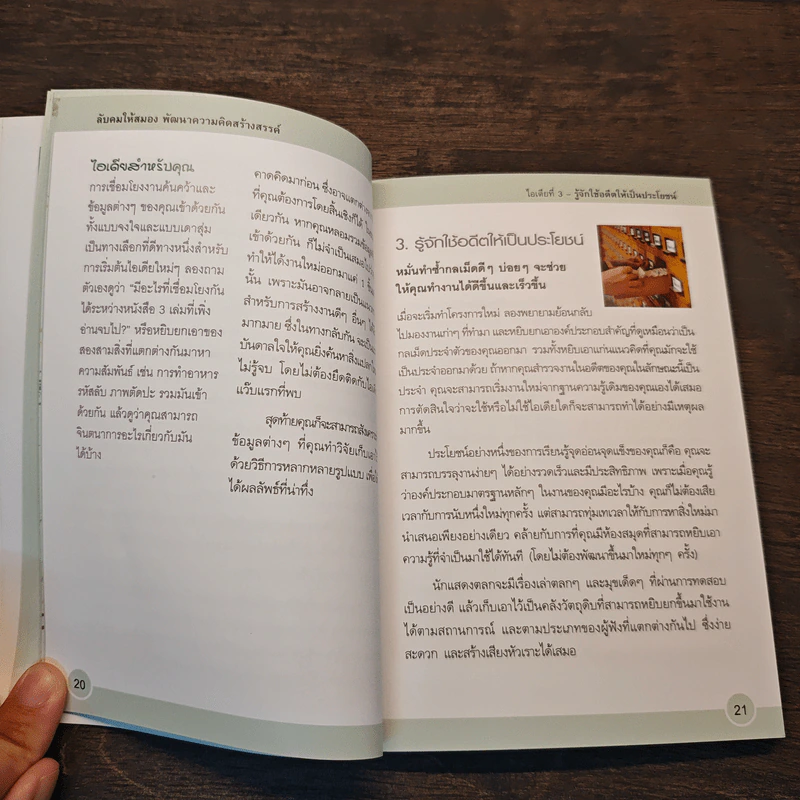 ลับคมให้สมอง พัฒนาความคิดสร้างสรรค์
ไอเดียสำหรับคุณ
การเชื่อมโยงงานค้นคว้าและ
ข้อมูลต่างๆ ของคุณเข้าด้วยกัน
ทั้งแบบจงใจและแบบเดาสุ่ม
เป็นทางเลือกที่ดีทางหนึ่งสำหรับ
การเริ่มต้นไอเดียใหม่ๆ ลองถาม
ตัวเองดูว่า “มีอะไรที่เชื่อมโยงกัน
ได้ระหว่างหนังสือ 3 เล่มที่เพิ่ง
อ่านจบไป?” หรือหยิบยกเอาของ
สองสามสิ่งที่แตกต่างกันมาหา
ความสัมพันธ์ เช่น การทำอาหาร
รหัสลับ ภาพตัดปะ รวมมันเข้า
ด้วยกัน แล้วดูว่าคุณสามารถ
จินตนาการอะไรเกี่ยวกับมัน
ได้บ้าง
คาดคิดมาก่อน ซึ่งอาจแตกต่าง
ที่คุณต้องการโดยสิ้นเชิงก็ได้
เดียวกัน หากคุณหลอมรวม
เข้าด้วยกัน ก็ไม่จำเป็นเสมอไป
ทำให้ได้งานใหม่ออกมาแค่ 1
นั้น เพราะมันอาจกลายเป็น
สำหรับการสร้างงานดีๆ อื่นๆ
มากมาย ซึ่งในทางกลับกัน จะเป็น
บันดาลใจให้คุณยิ่งค้นหาสิ่งแปลก
ไม่รู้จบ โดยไม่ต้องยึดติดกับ
แว๊บแรกที่พบ
สุดท้ายคุณก็จะสามารถ
ข้อมูลต่างๆ ที่คุณทำวิจัยเก็บเอา
ด้วยวิธีการหลากหลายรูปแบบ เพื่อ
ได้ผลลัพธ์ที่น่าทึ่ง
20
ไอเดียที่ 3 – รู้จักใช้อดีตให้เป็นประโยชน์
3. รู้จักใช้อดีตให้เป็นประโยชน์
หมั่นทำซ้ำกลเม็ดดีๆ บ่อยๆ จะช่วย
ให้คุณทำงานได้ดีขึ้นและเร็วขึ้น
เมื่อจะเริ่มทำโครงการใหม่ ลองพยายามย้อนกลับ
ไปมองงานเก่าๆ ที่ทำมา และหยิบยกเอาองค์ประกอบสำคัญที่ดูเหมือนว่าเป็น
กลเม็ดประจำตัวของคุณออกมา รวมทั้งหยิบเอาแก่นแนวคิดที่คุณมักจะใช้
เป็นประจำออกมาด้วย ถ้าหากคุณสำรวจงานในอดีตของคุณในลักษณะนี้เป็น
ประจำ คุณจะสามารถเริ่มงานใหม่จากฐานความรู้เดิมของคุณเองได้เสมอ
การตัดสินใจว่าจะใช้หรือไม่ใช้ไอเดียใดก็จะสามารถทำได้อย่างมีเหตุผล
มากขึ้น
ประโยชน์อย่างหนึ่งของการเรียนรู้จุดอ่อนจุดแข็งของคุณก็คือ คุณจะ
สามารถบรรลุงานง่ายๆ ได้อย่างรวดเร็วและมีประสิทธิภาพ เพราะเมื่อคุณรู้
ว่าองค์ประกอบมาตรฐานหลักๆ ในงานของคุณมีอะไรบ้าง คุณก็ไม่ต้องเสีย
เวลากับการนับหนึ่งใหม่ทุกครั้ง แต่สามารถทุ่มเทเวลาให้กับการหาสิ่งใหม่มา
นำเสนอเพียงอย่างเดียว คล้ายกับการที่คุณมีห้องสมุดที่สามารถหยิบเอา
ความรู้ที่จำเป็นมาใช้ได้ทันที (โดยไม่ต้องพัฒนาขึ้นมาใหม่ทุกๆ ครั้ง)
นักแสดงตลกจะมีเรื่องเล่าตลกๆ และมุขเด็ดๆ ที่ผ่านการทดสอบ
เป็นอย่างดี แล้วเก็บเอาไว้เป็นคลังวัตถุดิบที่สามารถหยิบยกขึ้นมาใช้งาน
ได้ตามสถานการณ์ และตามประเภทของผู้ฟังที่แตกต่างกันไป ซึ่งง่าย
สะดวก และสร้างเสียงหัวเราะได้เสมอ
21